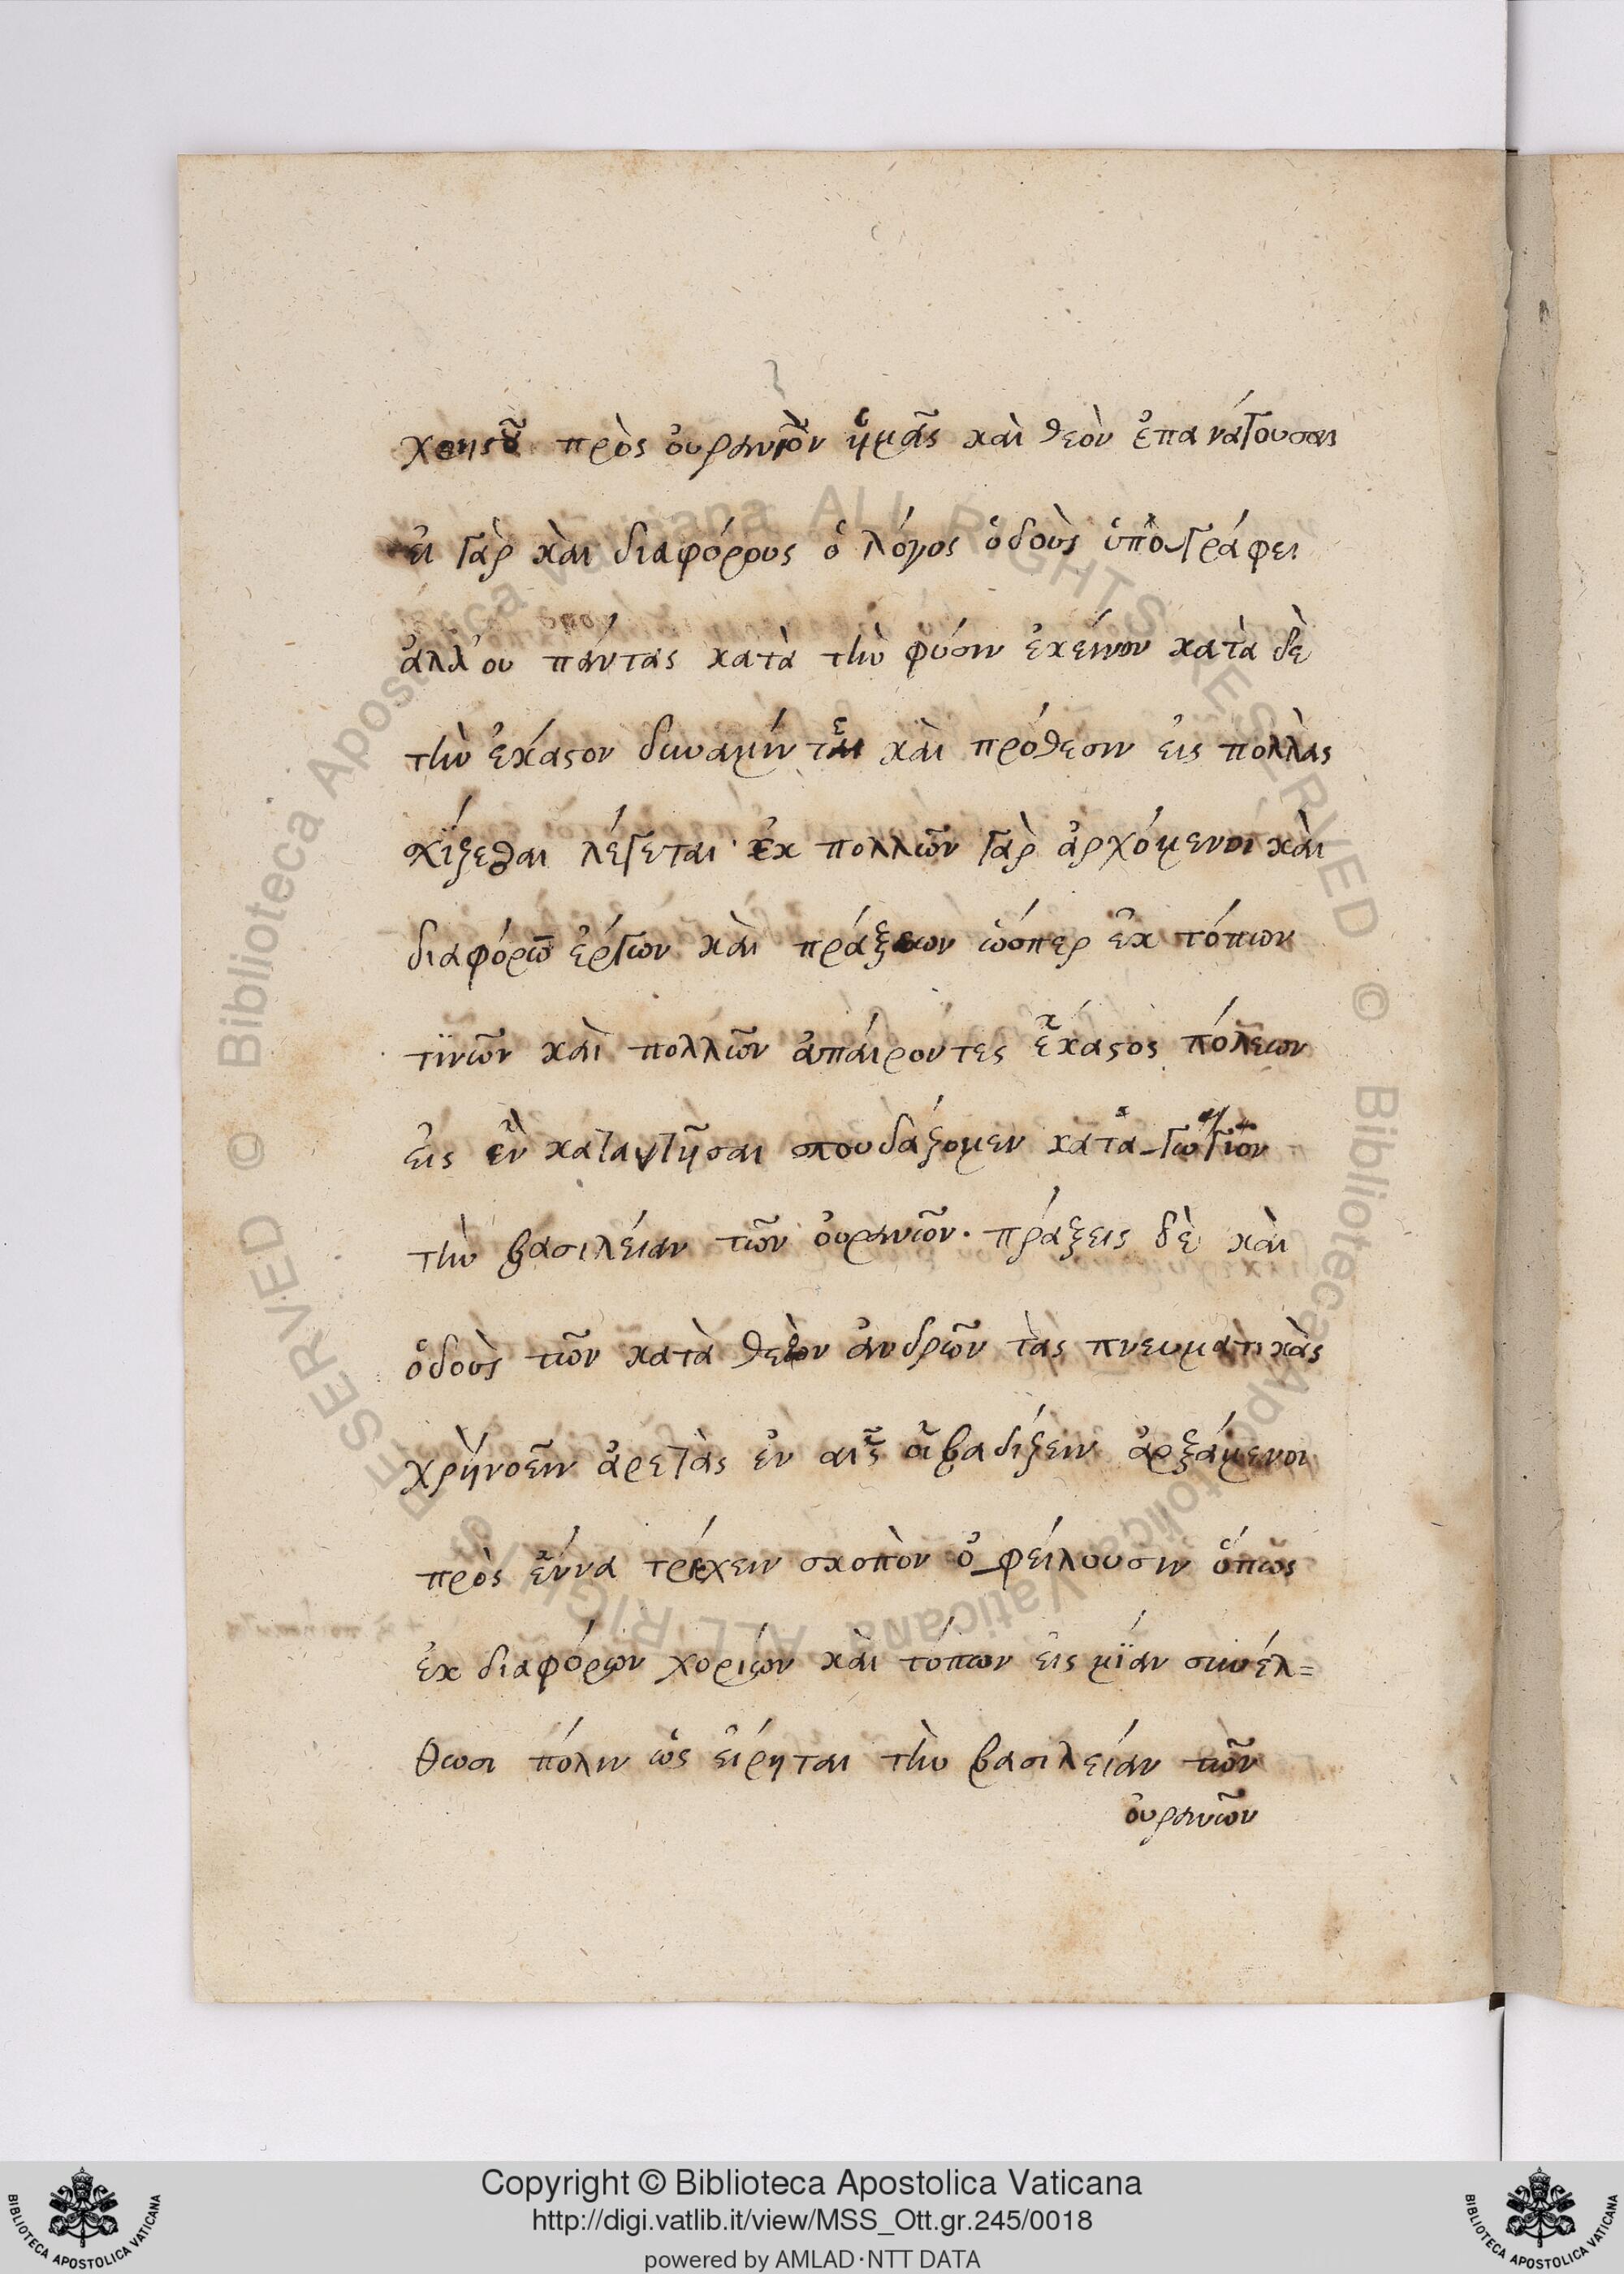 χρηστοῦ πρὸς οὐρανιὸν ἡμᾶς καὶ θεὸν ἐπανάγουσαι
εἰ γὰρ καὶ διαφόρους ὁ λόγος ὁδοὺς ὑπογράφει
ἀλλ' ου πάντας κατὰ τὴν φύσιν ἐκείνων κατὰ δὲ
τὴν ἑκάστον δυναμίν καὶ πρόθεσιν εἰς πολλὰς
σχίζεσθαι λέγεται ἐκ πολλῶν γὰρ ἀρχόμενοι καὶ
διαφόρω ἐργων καὶ πράξεων ὥσπερ ἐκ τόπων
τϊνῶν καὶ πολλῶν ἀπαίροντες ἕκαστος πόλεων
εἰς ἓν καταντῆσαι σπουδάζομεν κατὰ
τὴν βασιλείαν τῶν οὐρανῶν· πράξεις δὲ καὶ
ὁδοὺς τῶν κατὰ θεὸν ἀνδρῶν τὰς πνευματικὰς
χρὴ νοεῖν ἀρετὰς ἐν αἷς οἱ βαδίζειν ἀρξάμενοι
πρὸς ἕννα τρέχειν σκοπὸν ὀφείλουσιν ὅπως
ἐκ διαφόρων χορίων καὶ τόπων εἰς μϊάν συνέλ=
θωσι πόλιν ὡς εἴρηται τὴν βασιλείαν τῶν
οὐρανῶν
Copyright © Biblioteca Apostolica Vaticana
http://digi.vatlib.it/view/MSS_Ott.gr.245/0018
powered by AMLAD·NTT DATA
BIBLIOTECA APOSTOLICA VATICANA
BIBLIOTECA APOSTOLICA VATICANA